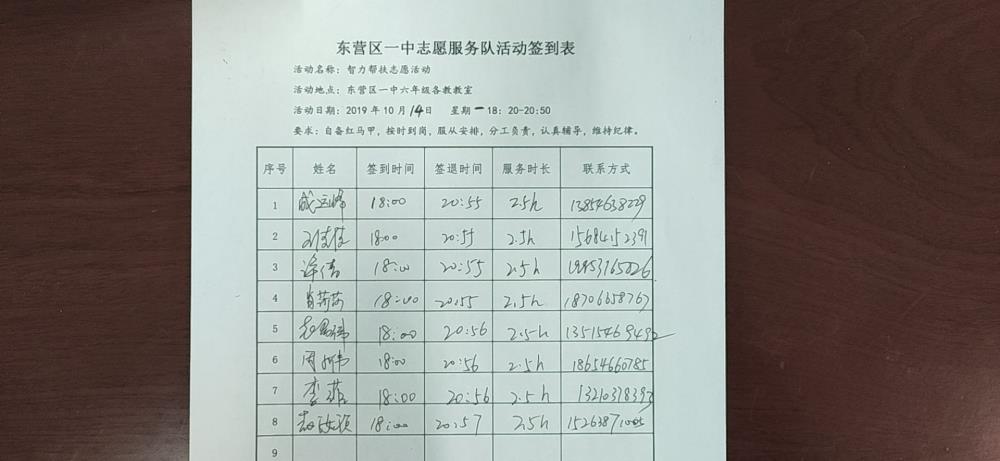 东营区一中志愿服务队活动签到表
活动名称：智力帮扶志愿活动
活动地点：东营区一中六年级各教教室
活动日期：2019 年 10 月 14 日 星期一 18：20-20:50
要求：自备红马甲，按时到岗，服从安排，分工负责，认真辅导，维持纪律。
序号 姓名 签到时间 签退时间 服务时长 联系方式
1 18:00 20:55 2.5h 13854638229
2 18:00 20:55 2.5h 15684152391
3 18:00 20:55 2.5h
4 肖莉莉 18:00 20:55 2.5h 18706658767
5 18:00 20:56 2.5h 13515469492
6 18:00 20:56 2.5h 18654660785
7 李菲 18:00 20:56 2.5h 13210378393
8 18:00 20:57 2.5h 15263871005
9